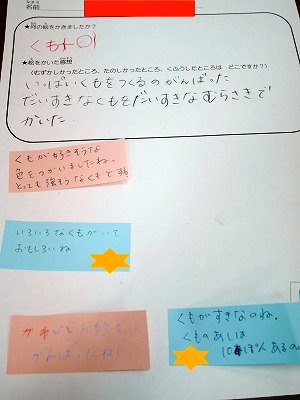 なまえ
名前
★何の絵をかきましたか?
くも
★絵をかいた感想
(むずかしかったところ、たのしかったところ、くふうしたところは どこですか?)
いっぱいくもをつくるのがんばった
だいすきなくもをだいすきなむらさきで
かいた
くもが好きそうな
色をつかいましたね。
とっても強そうなくもです
いろいろなくもがいて
おもしろいね
がんばったね!
くもがすきなのね。
くものあしは
10ぽんあるの